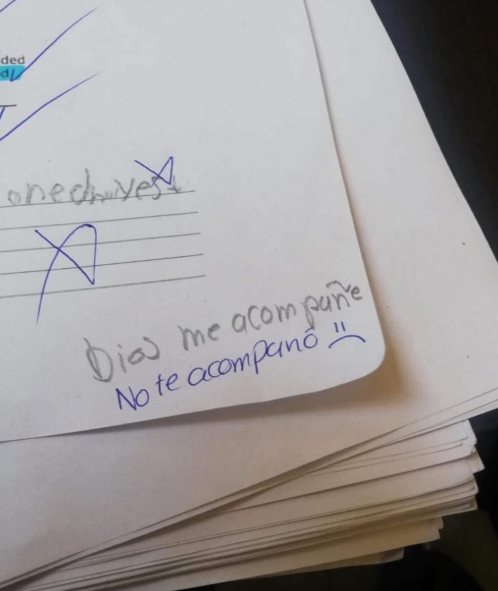 ded
d
Dios me acompañe
No te acompañó